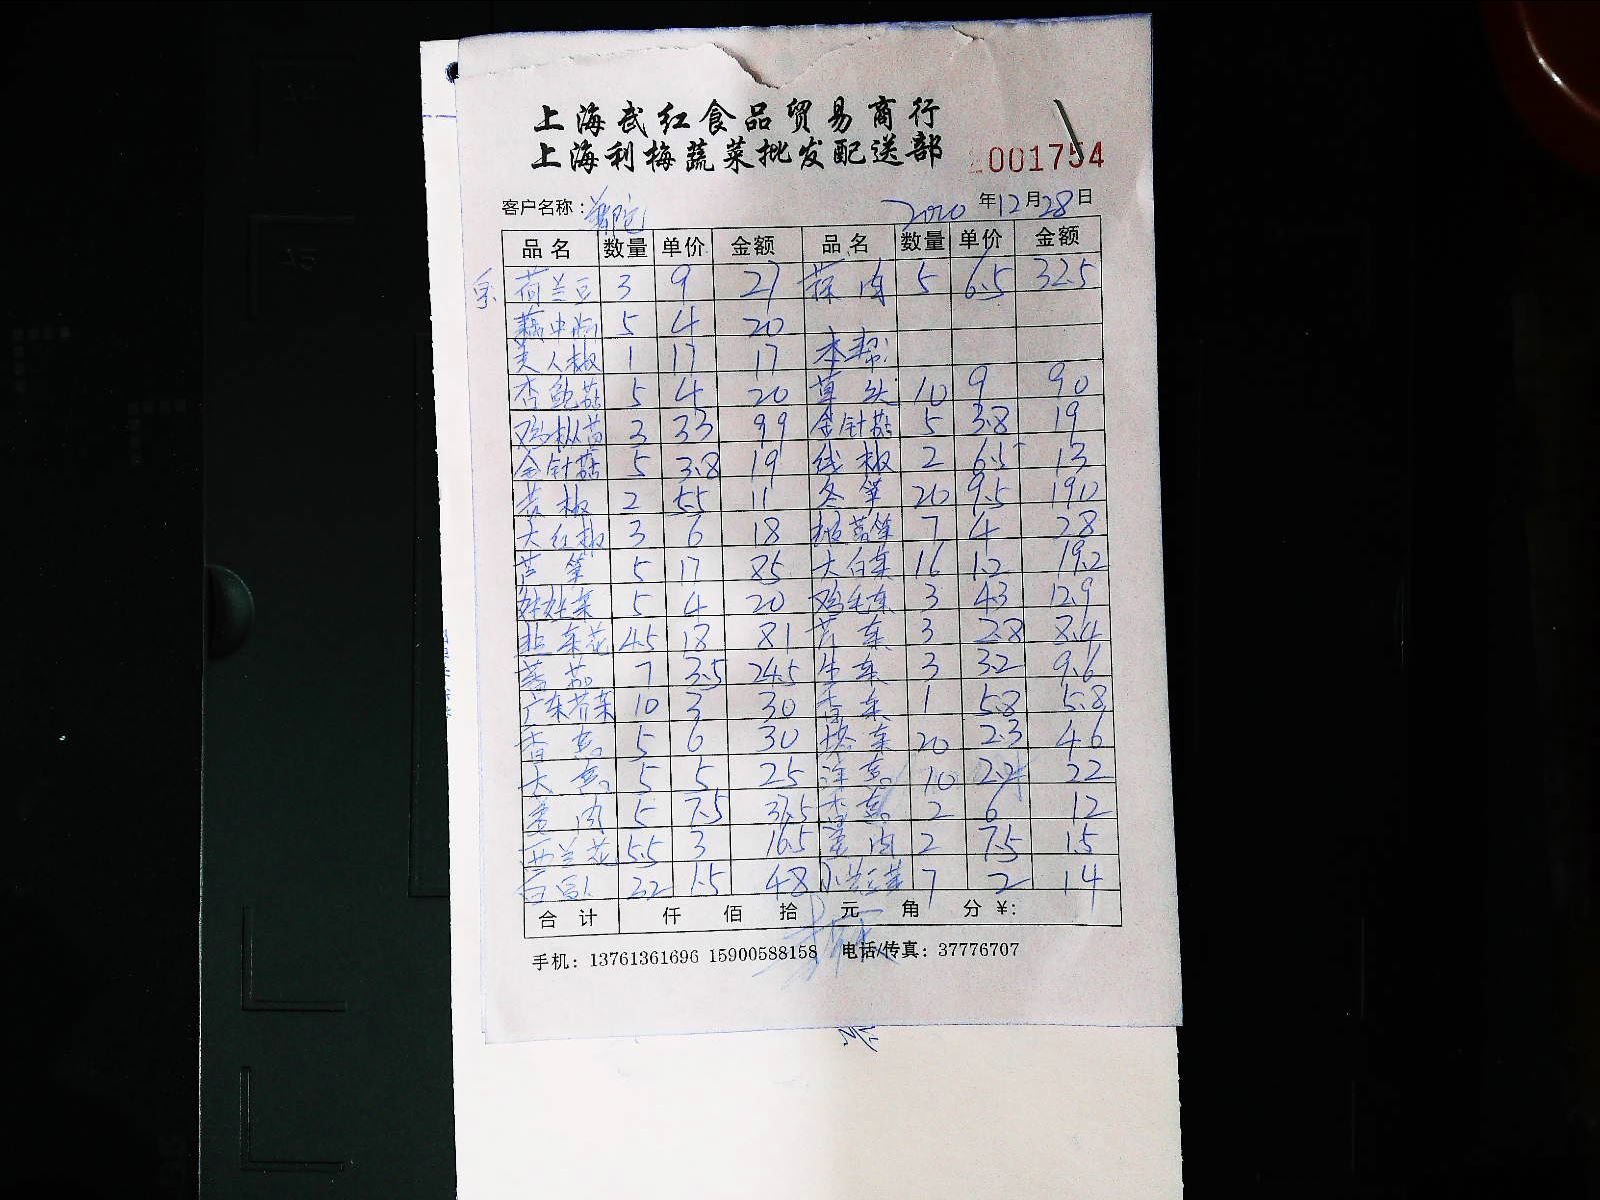 上海武红食品贸易商行
上海利梅蔬菜批发配送部
001754
客户名称：
2020年12月28日
品名 数量 单价 金额 品名 数量 单价 金额
荷兰豆 3 9 27 蒜肉 5 6.5 32.5
5 4 20
美人椒 1 17 17 本帮:
杏鲍菇 5 4 20 草头 10 9 90
鸡枞菌 3 33 99 金针菇 5 3.8 19
金针菇 5 3.8 19 线椒 2 6.5 13
黄椒 2 5.5 11 冬笋 20 9.5 190
大红椒 3 6 18 7 4 28
芦笋 5 17 85 大白菜 16 1.2 19.2
娃娃菜 5 4 20 鸡毛菜 3 4.3 12.9
韭菜花 4.5 18 81 芹菜 3 2.8 8.4
蕃茄 7 3.5 24.5 生菜 3 3.2 9.6
广东芥菜 10 3 30 香菜 1 5.8 5.8
香 5 6 30 塔菜 20 2.3 46
大 5 5 25 洋 10 2.2 22
姜肉 5 7.5 37.5 香 2 6 12
西兰花 5.5 3 16.5 姜肉 2 7.5 15
22 1.5 48 7 2 14
合计 仟 佰 拾 元 角 分 ¥:
手机：13761361696 15900588158 电话/传真：37776707